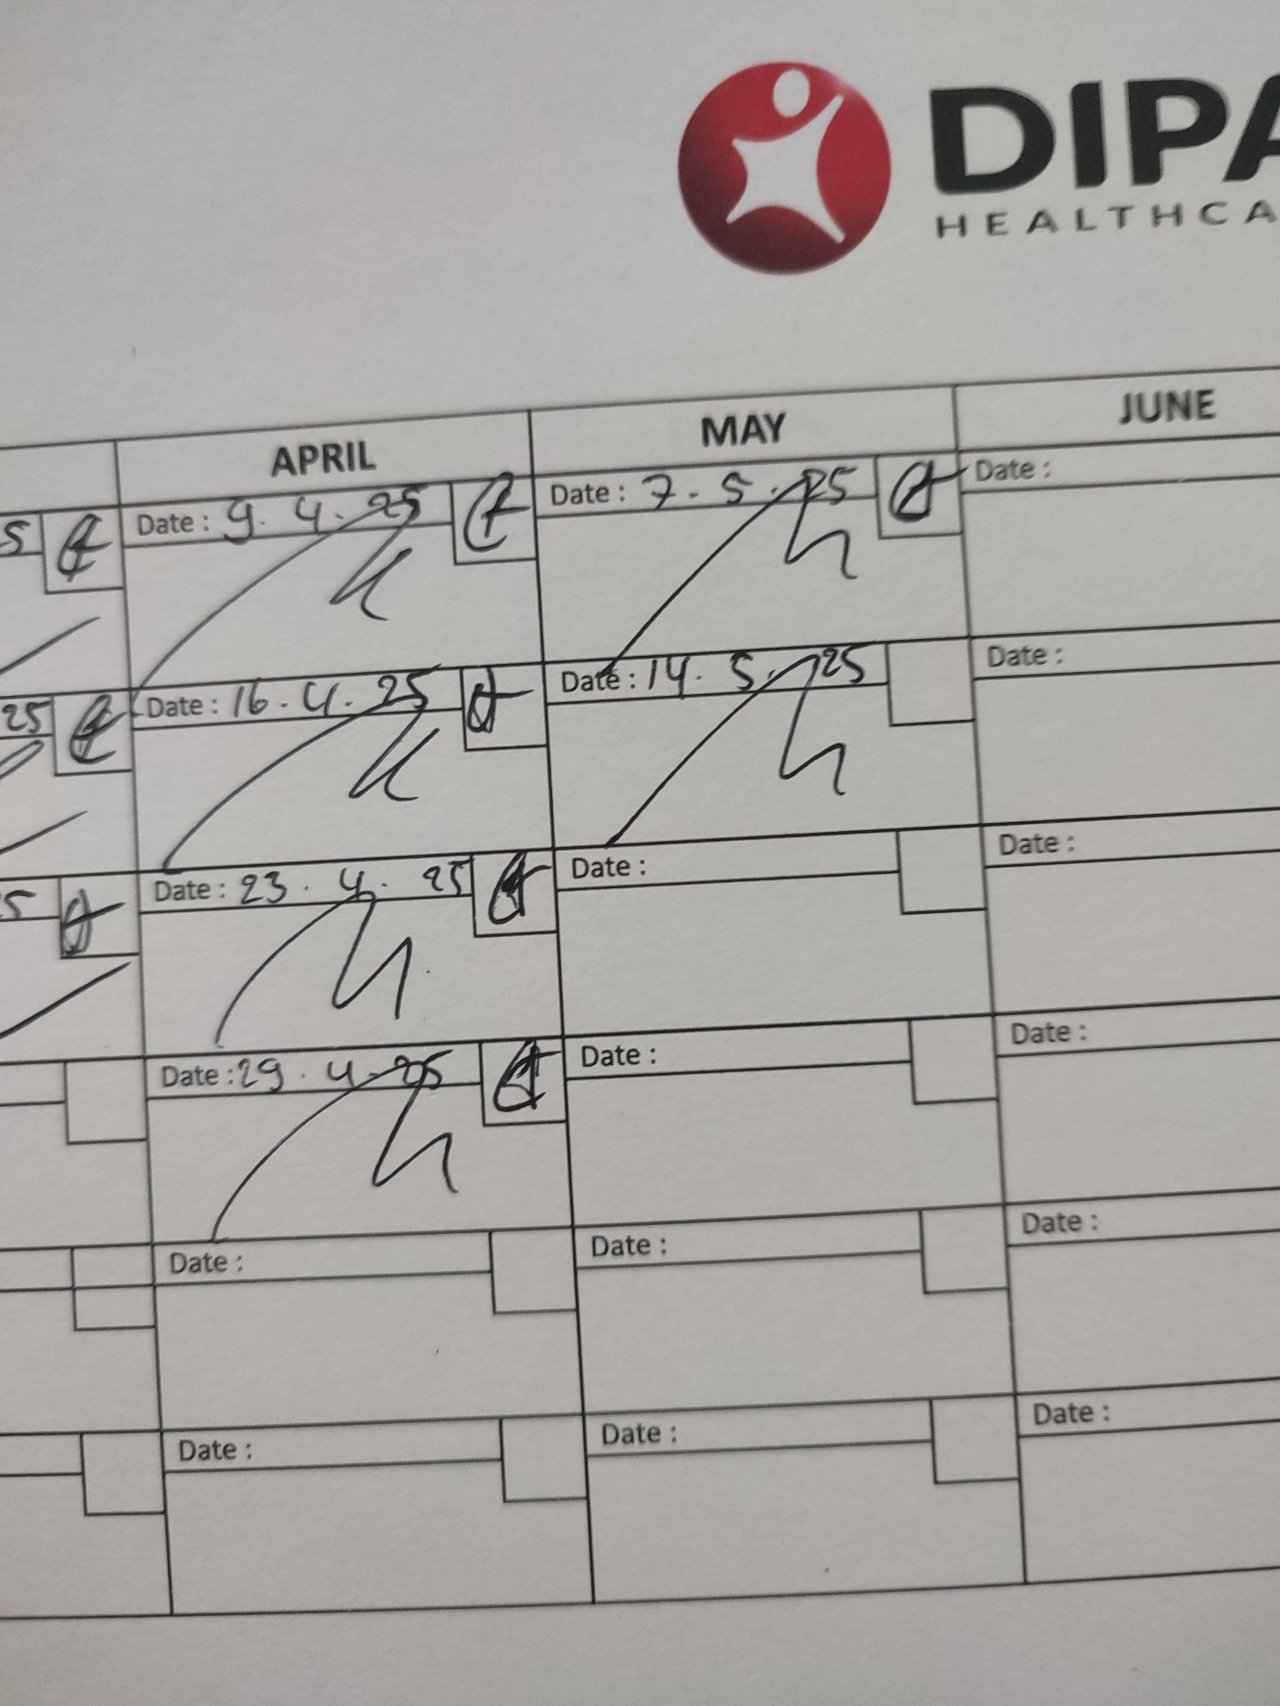 DIPA
HEALTHCA
APRIL MAY JUNE
5 Date : 9. 4. 25 Date : 7. 5. 25 Date :
25 Date : 16. 4. 25 Date : 14. 5. 25 Date :
5 Date : 23. 4. 25 Date : Date :
Date : 29. 4. 25 Date : Date :
Date : Date : Date :
Date : Date : Date :